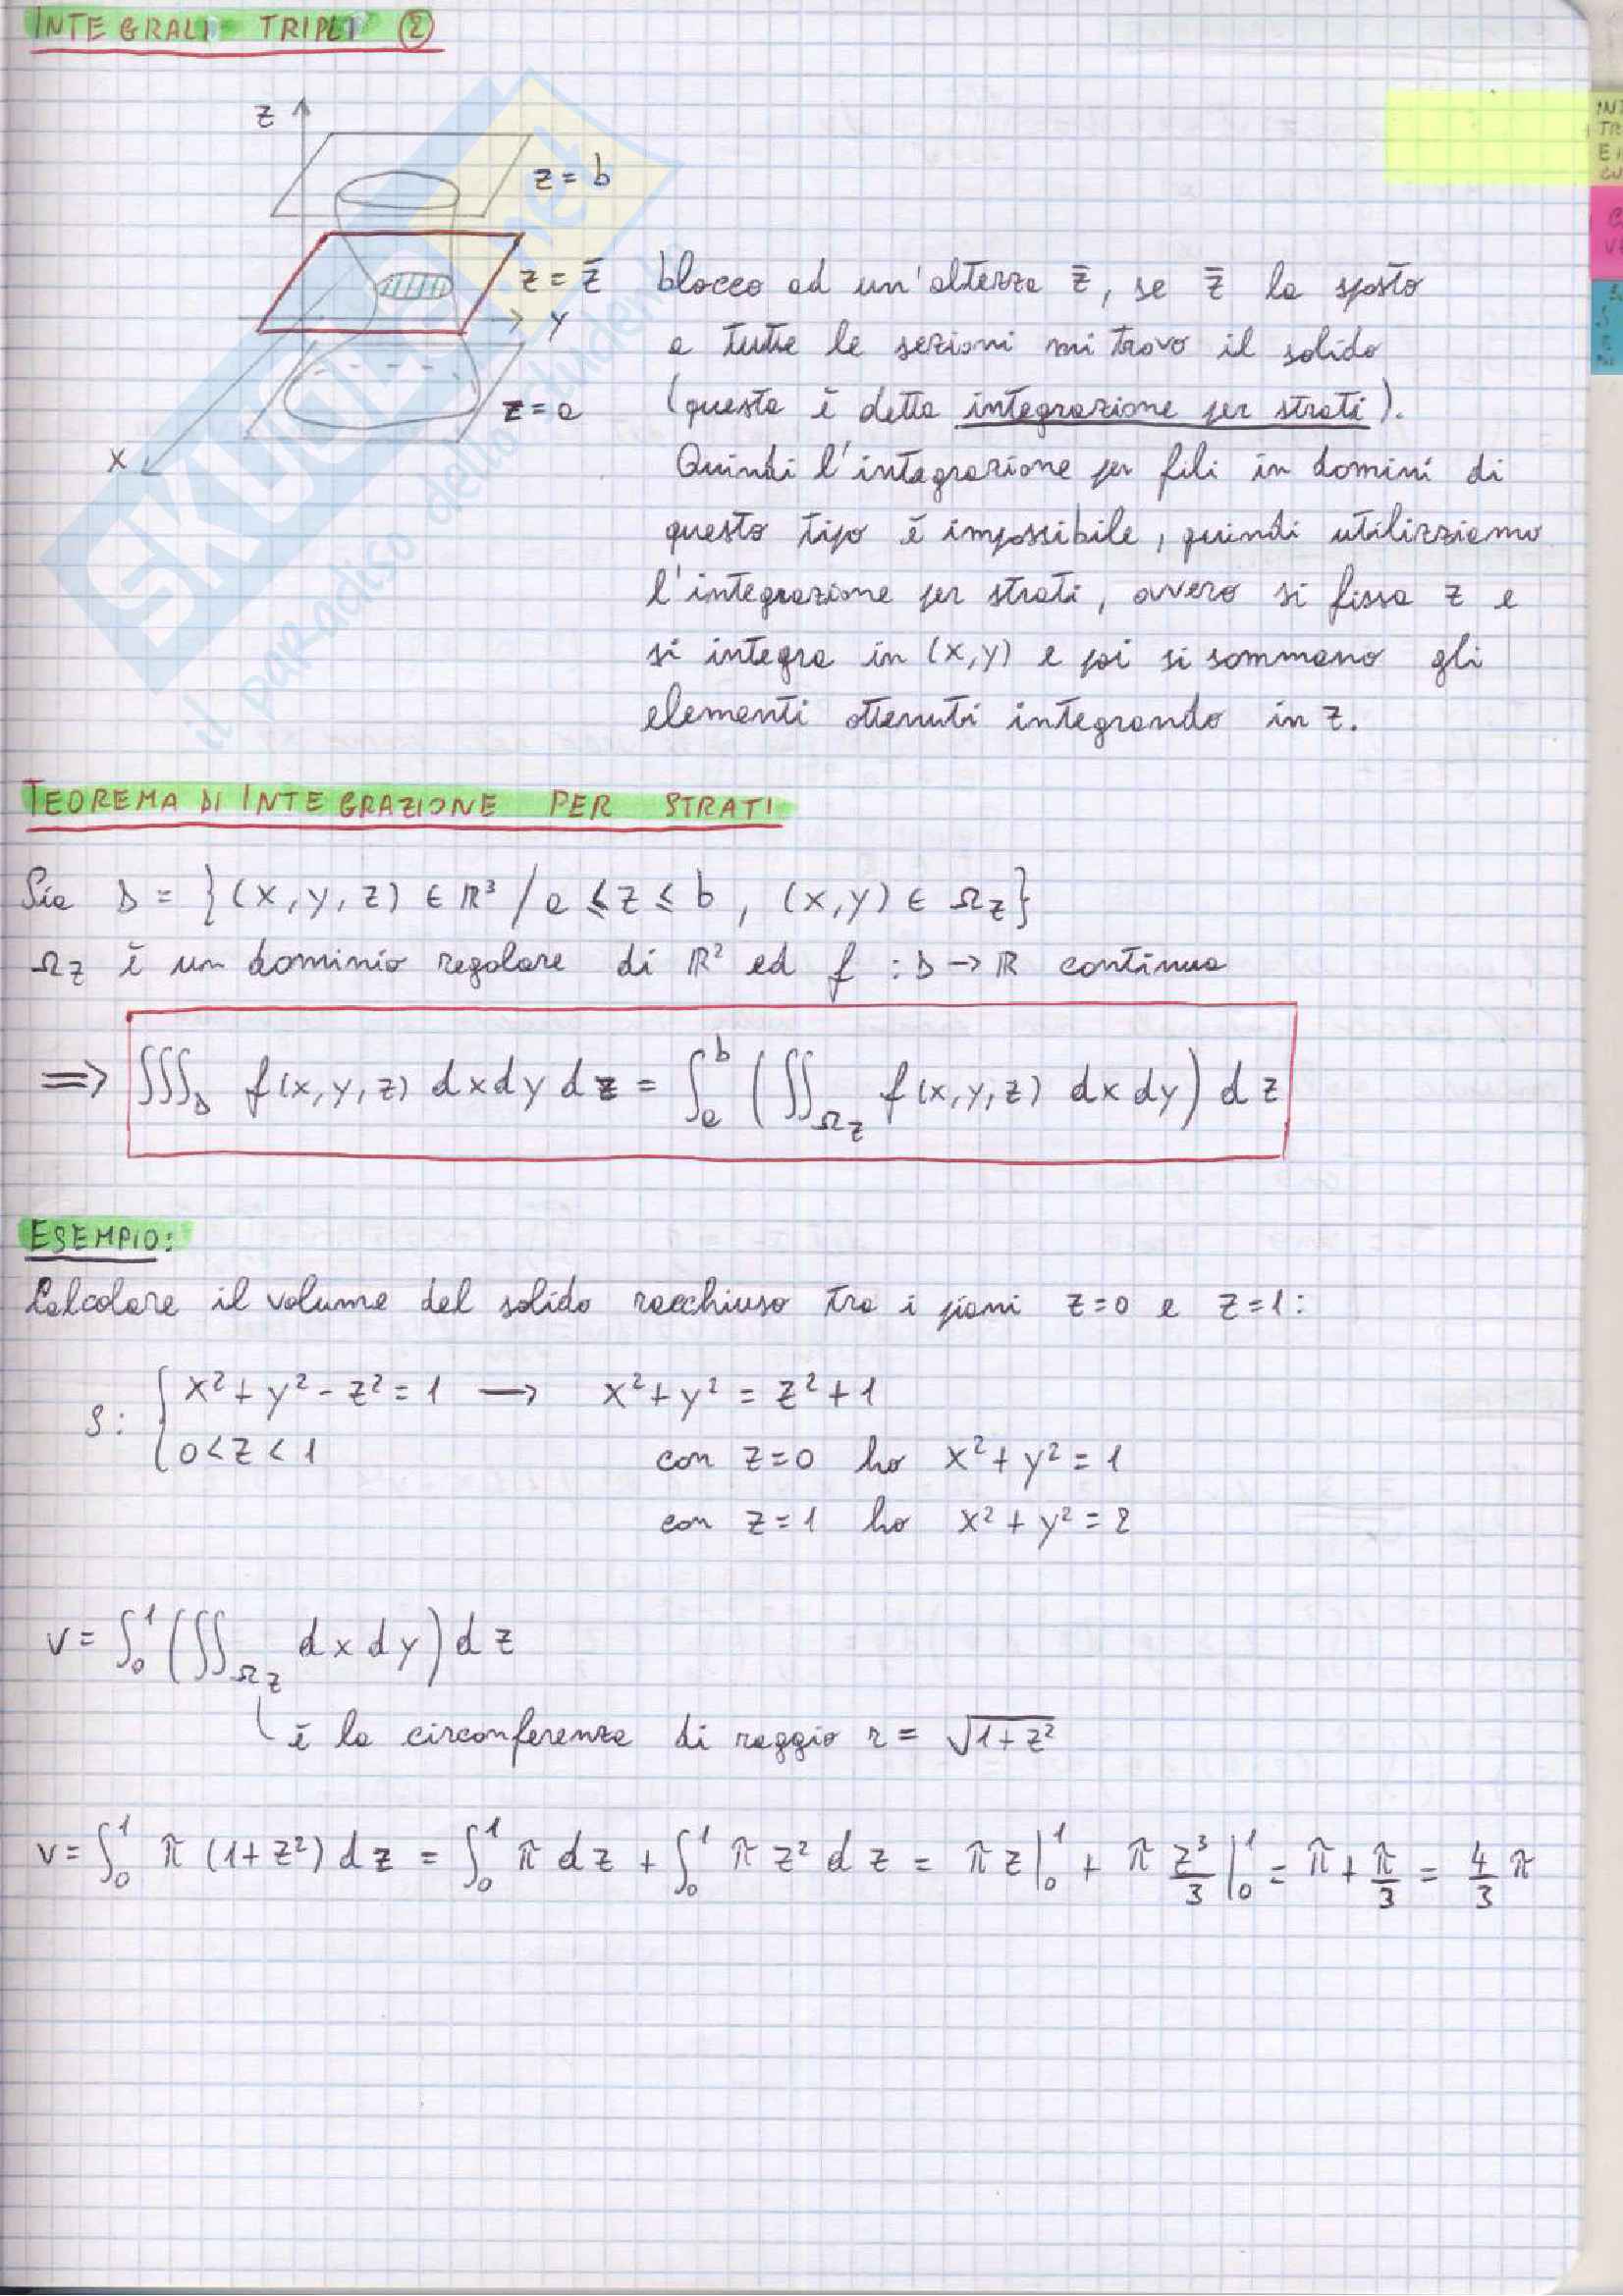 INTEGRALI TRIPLI ②
z
z = b
z = z̄
y
z = a
x
blocco ad un'altezza z̄, se z̄ la sposto
a tutte le sezioni mi trovo il solido
(questa è detta integrazione per strati).
Quindi l'integrazione per fili in domini di
questo tipo è impossibile, quindi utilizziamo
l'integrazione per strati, ovvero si fissa z e
si integra in (x,y) e poi si sommano gli
elementi ottenuti integrando in z.
SKUOLA.net
il paradiso dello studente
TEOREMA DI INTEGRAZIONE PER STRATI
Sia D = {(x,y,z) ∈ ℝ³ / a ≤ z ≤ b, (x,y) ∈ Ωz}
Ωz è un dominio regolare di ℝ² ed f : D → ℝ continua
⇒ ∫∫∫_D f(x,y,z) dxdydz = ∫_a^b (∫∫_Ωz f(x,y,z) dxdy) dz
ESEMPIO:
Calcolare il volume del solido racchiuso tra i piani z=0 e z=1:
S: { x²+y²-z²=1 → x²+y² = z²+1
0<z<1 con z=0 ho x²+y²=1
con z=1 ho x²+y²=2
V = ∫_0^1 (∫∫_Ωz dxdy) dz
è la circonferenza di raggio r = √(1+z²)
V = ∫_0^1 π (1+z²) dz = ∫_0^1 π dz + ∫_0^1 π z² dz = π z |_0^1 + π z³/3 |_0^1 = π + π/3 = 4/3 π